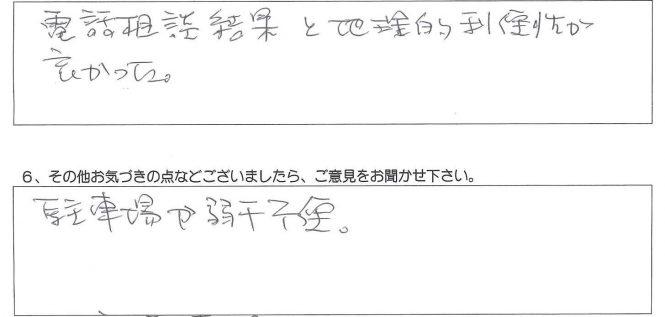 電話相談結果と地理的利便性が
良かった。
6、その他お気づきの点などございましたら、ご意見をお聞かせ下さい。
駐車場が弱干不便。